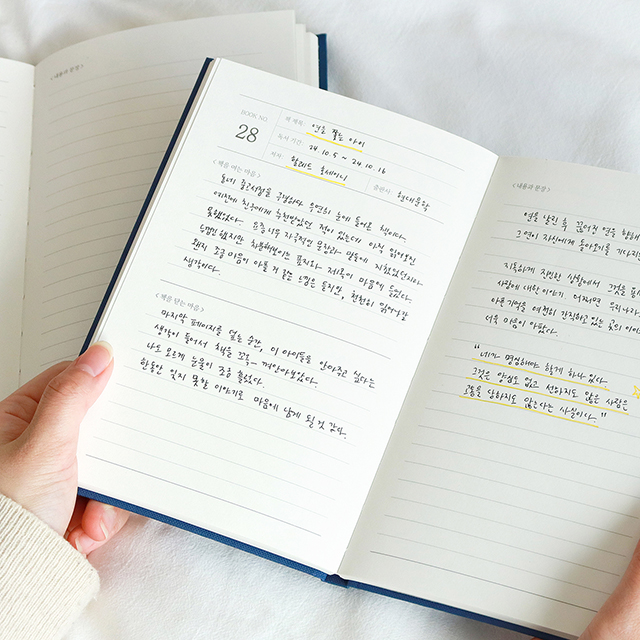 <내용과 문장>
BOOK NO.
28
책 제목: 연을 쫓는 아이
독서 기간: 24. 10. 5 ~ 24. 10. 16
저자: 할레드 호세이니
출판사: 현대문학
<책을 여는 마음>
눈에 들어온 책이다.
예전에 친구에게 추천받았던 적이 있는데 아직 읽어보진
못했었다. 요즘 너무 자극적인 문학과 영상들에 지쳤었던지라
제목이 마음에 들었다.
왠지 조금 마음이 아플 것 같은 느낌은 들지만, 천천히 읽어나갈
생각이다.
<책을 닫는 마음>
마지막 페이지를 덮는 순간, 이 아이들을 안아주고 싶다는
생각이 들어서 책을 꼬옥 껴안아보았다.
나도 모르게 눈물이 조금 흘렀다.
한동안 잊지 못할 이야기로 마음에 남게 될 것 같다.
<내용과 문장>
연을 날린 후 끊어진 연을 향해
그 연이 자신에게 돌아오기를 기다리는
지독하게 잔인한 상황에서 그것을
사람에 대한 이야기. 어쩌면 우리나라
아픈 기억을 여전히 간직하고 있는 곳의
더욱 마음이 아팠다.
"네가 명심해야 할 게 하나 있다.
그것은 양심도 없고 선하지도 않은 사람은
고통을 당하지도 않는다는 사실이다."